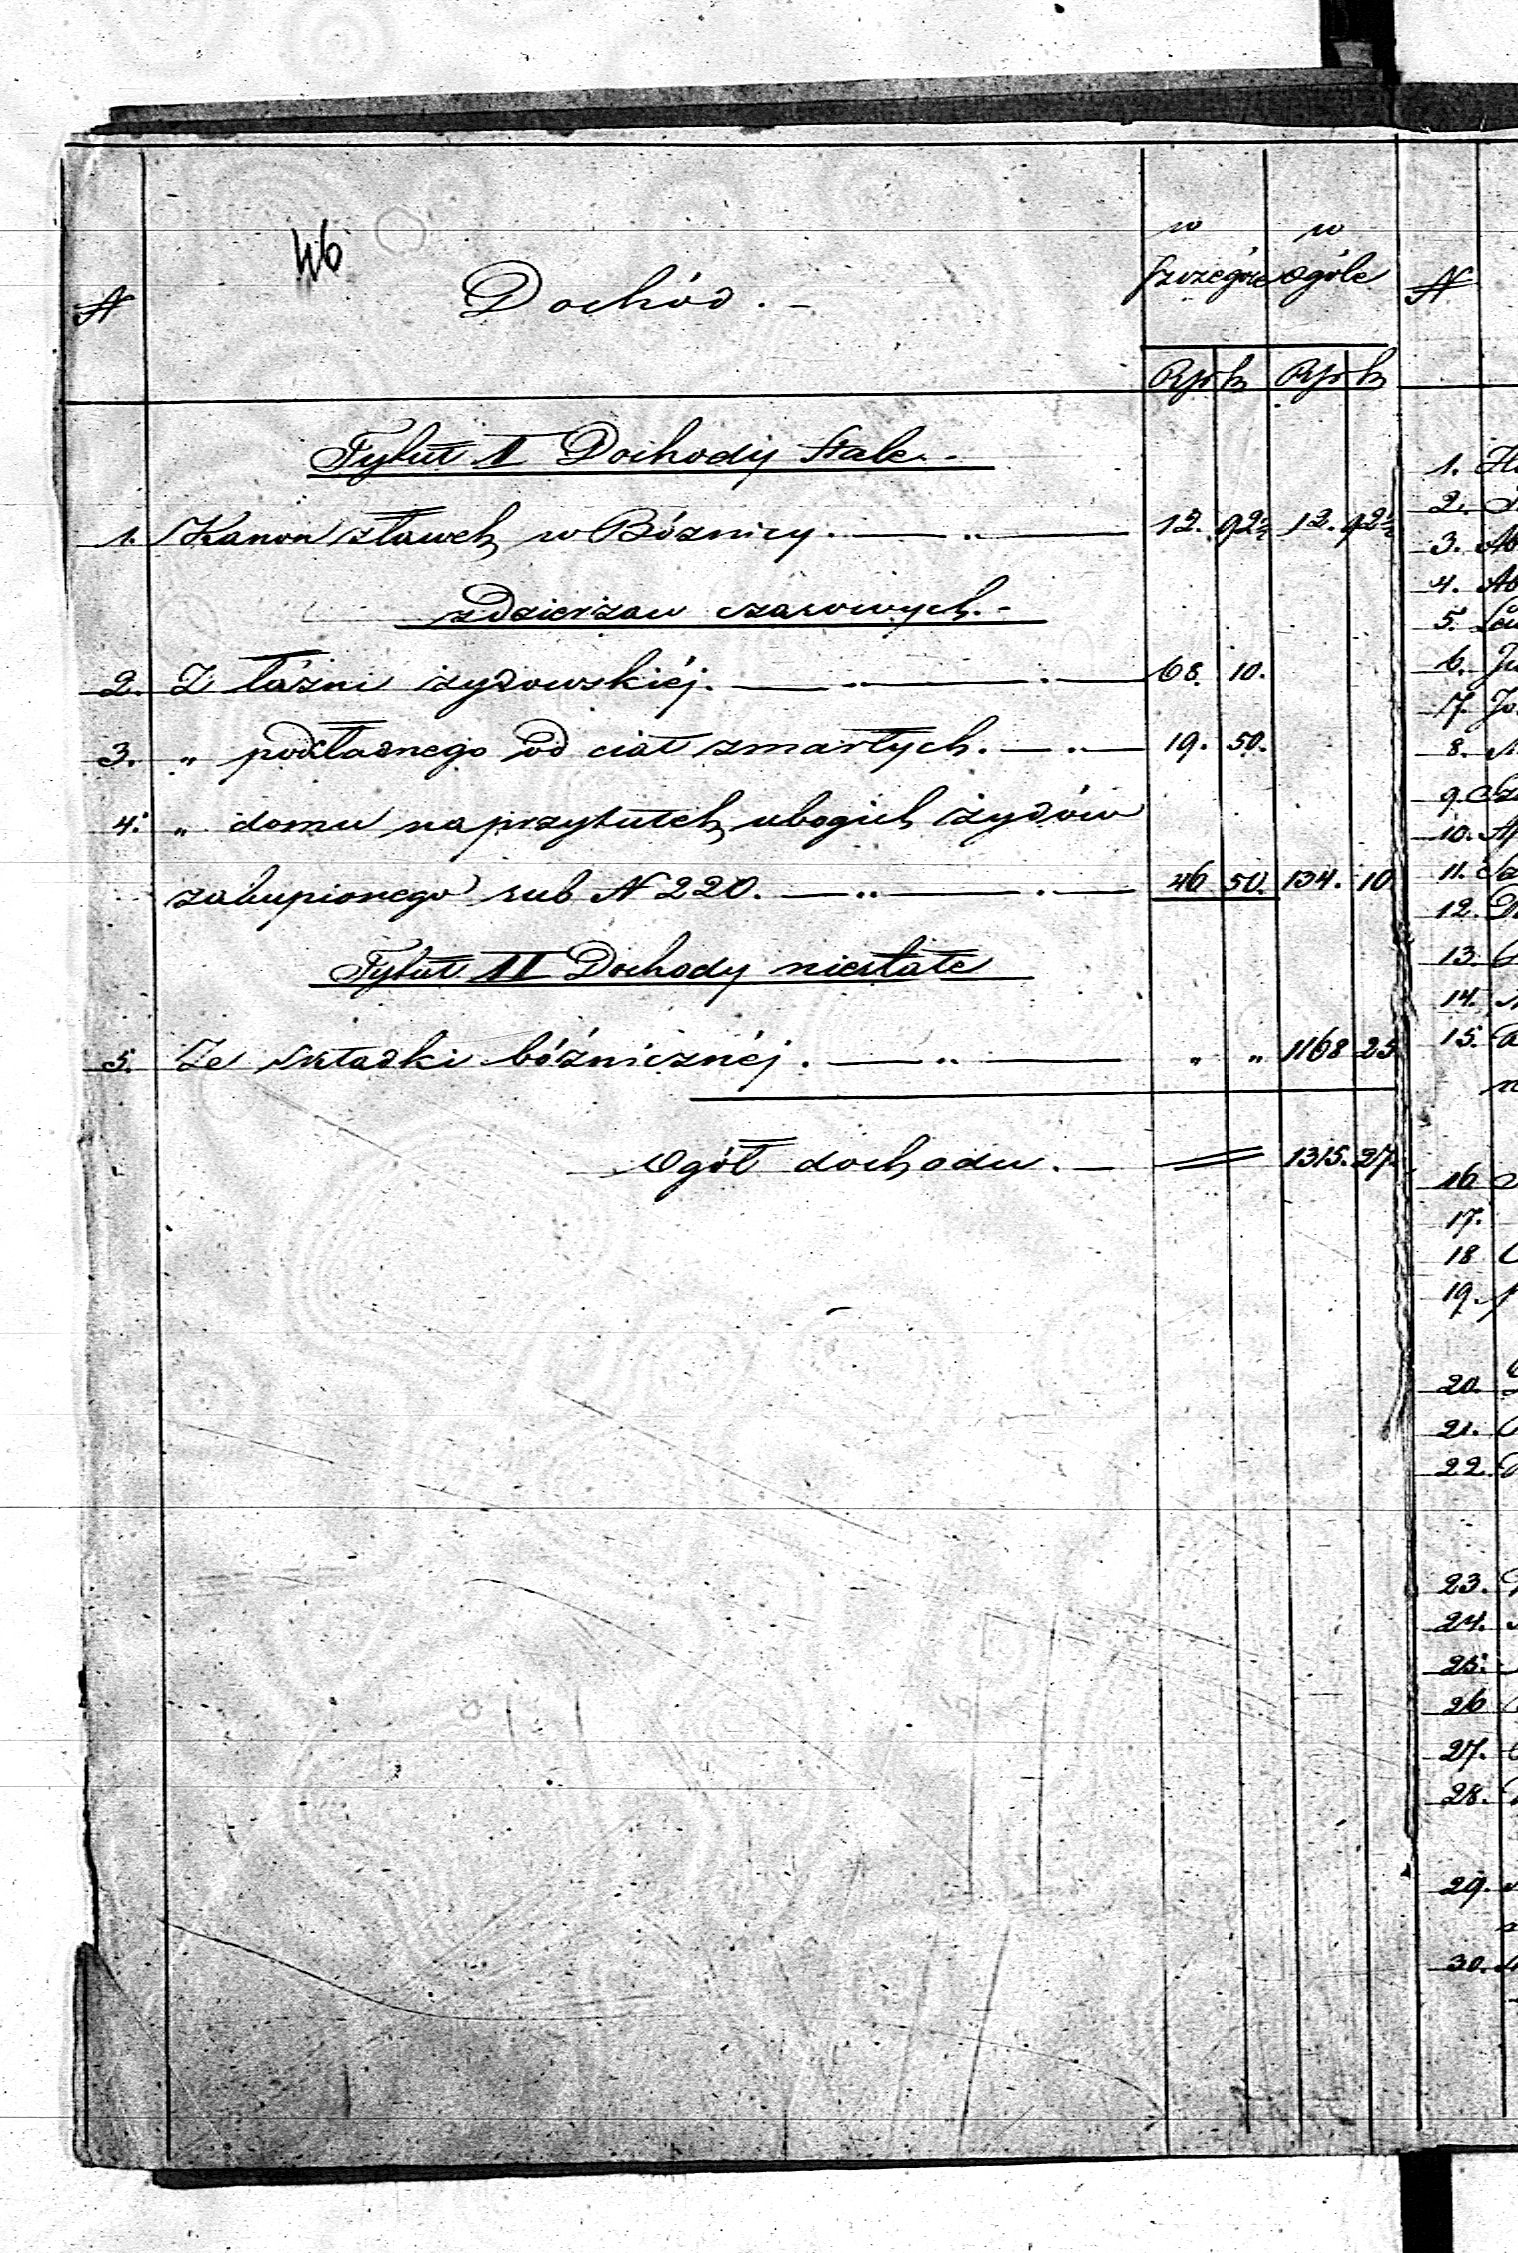 46
№ Dochód. w szczególe w ogóle
Rsr k Rsr k
Tytuł I Dochody Stałe.
1. Kanon z ławek w Bóżnicy. 12. 92½ 12. 92½
z Dzierżaw czasowych.
2. Z łaźni żydowskiéj. 68. 10.
3. „ pokładnego od ciał zmarłych. 19. 50.
4. „ domu na przytułek ubogich żydów
zakupionego sub N 220. 46 50. 134. 10
Tytuł II Dochody niestałe
5. Ze składki bóźnicznéj. „ „ 1168 25
Ogół dochodu. 1315. 27
№
1.
2.
3.
4.
5.
6.
7.
8.
9.
10.
11.
12.
13.
14.
15.
16
17.
18
19.
20.
21.
22.
23.
24.
25.
26
27.
28.
29.
30.